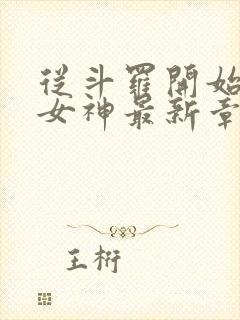 從斗羅開始
女神最新章
王桁